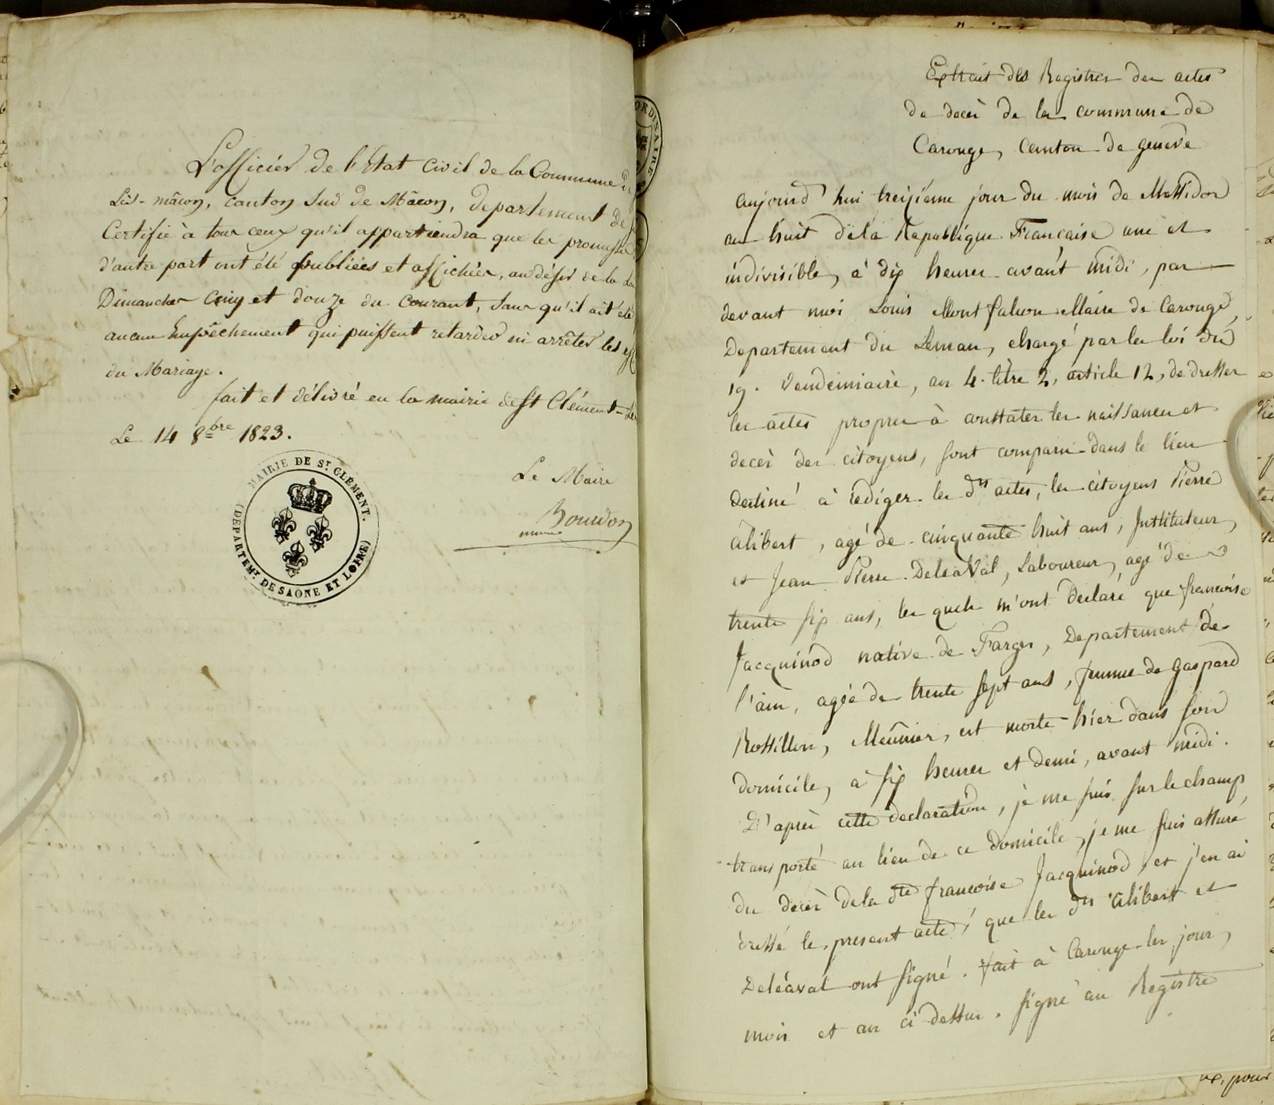 L'officier de l'Etat Civil de la Commune de
Lès-mâcon, canton Sud de Mâcon, département de
Certifie à tous ceux qu'il appartiendra que les promesses
d'autre part ont été publiées et affichées, au désir de la
Dimanches cinq et douze du courant, sans qu'il ait été
aucun Empêchement qui puissent retarder ni arrêter les
du Mariage.
fait et délivré en la mairie de St Clément-
Le 14 8bre 1823.
Le Maire
Bourdon
MAIRIE DE ST CLÉMENT.
(DÉPARTEMT DE SAONE ET LOIRE)
Extrait des Registres des actes
de decès de la commune de
Carouge, canton de genève
aujourd'hui treizième jour du mois de Messidor
an huit de la Republique Francaise une et
indivisible, à dix heures avant midi, par
devant moi Louis Montfalcon Maire de Carouge,
Departement du Leman, chargé par la loi du
19. Vendémiaire, an 4. titre 2, article 12, de dresser
les actes propres à constater les naissances et
decès des citoyens, sont comparu dans le lieu
destiné à rediger les dits actes, les citoyens Pierre
alibert, agé de cinquante huit ans, Instituteur,
et Jean Pierre Deléaval, Laboureur, agé de
trente six ans, les quels m'ont declaré que francoise
Jacquinod native de Farges, Departement de
l'ain, agée de trente sept ans, femme de Gaspard
Rossillon, Meûnier, est morte hier dans son
domicile, à six heures et demi, avant midi.
D'après cette declaration, je me suis sur le champ
transporté au lieu de ce domicile, je me suis assuré
du decès de la dte francoise Jacquinod, et j'en ai
dressé le present acte, que les dts alibert et
Deléaval ont signé. fait à Carouge les jour,
mois et an ci dessus. signé au Registre
pour